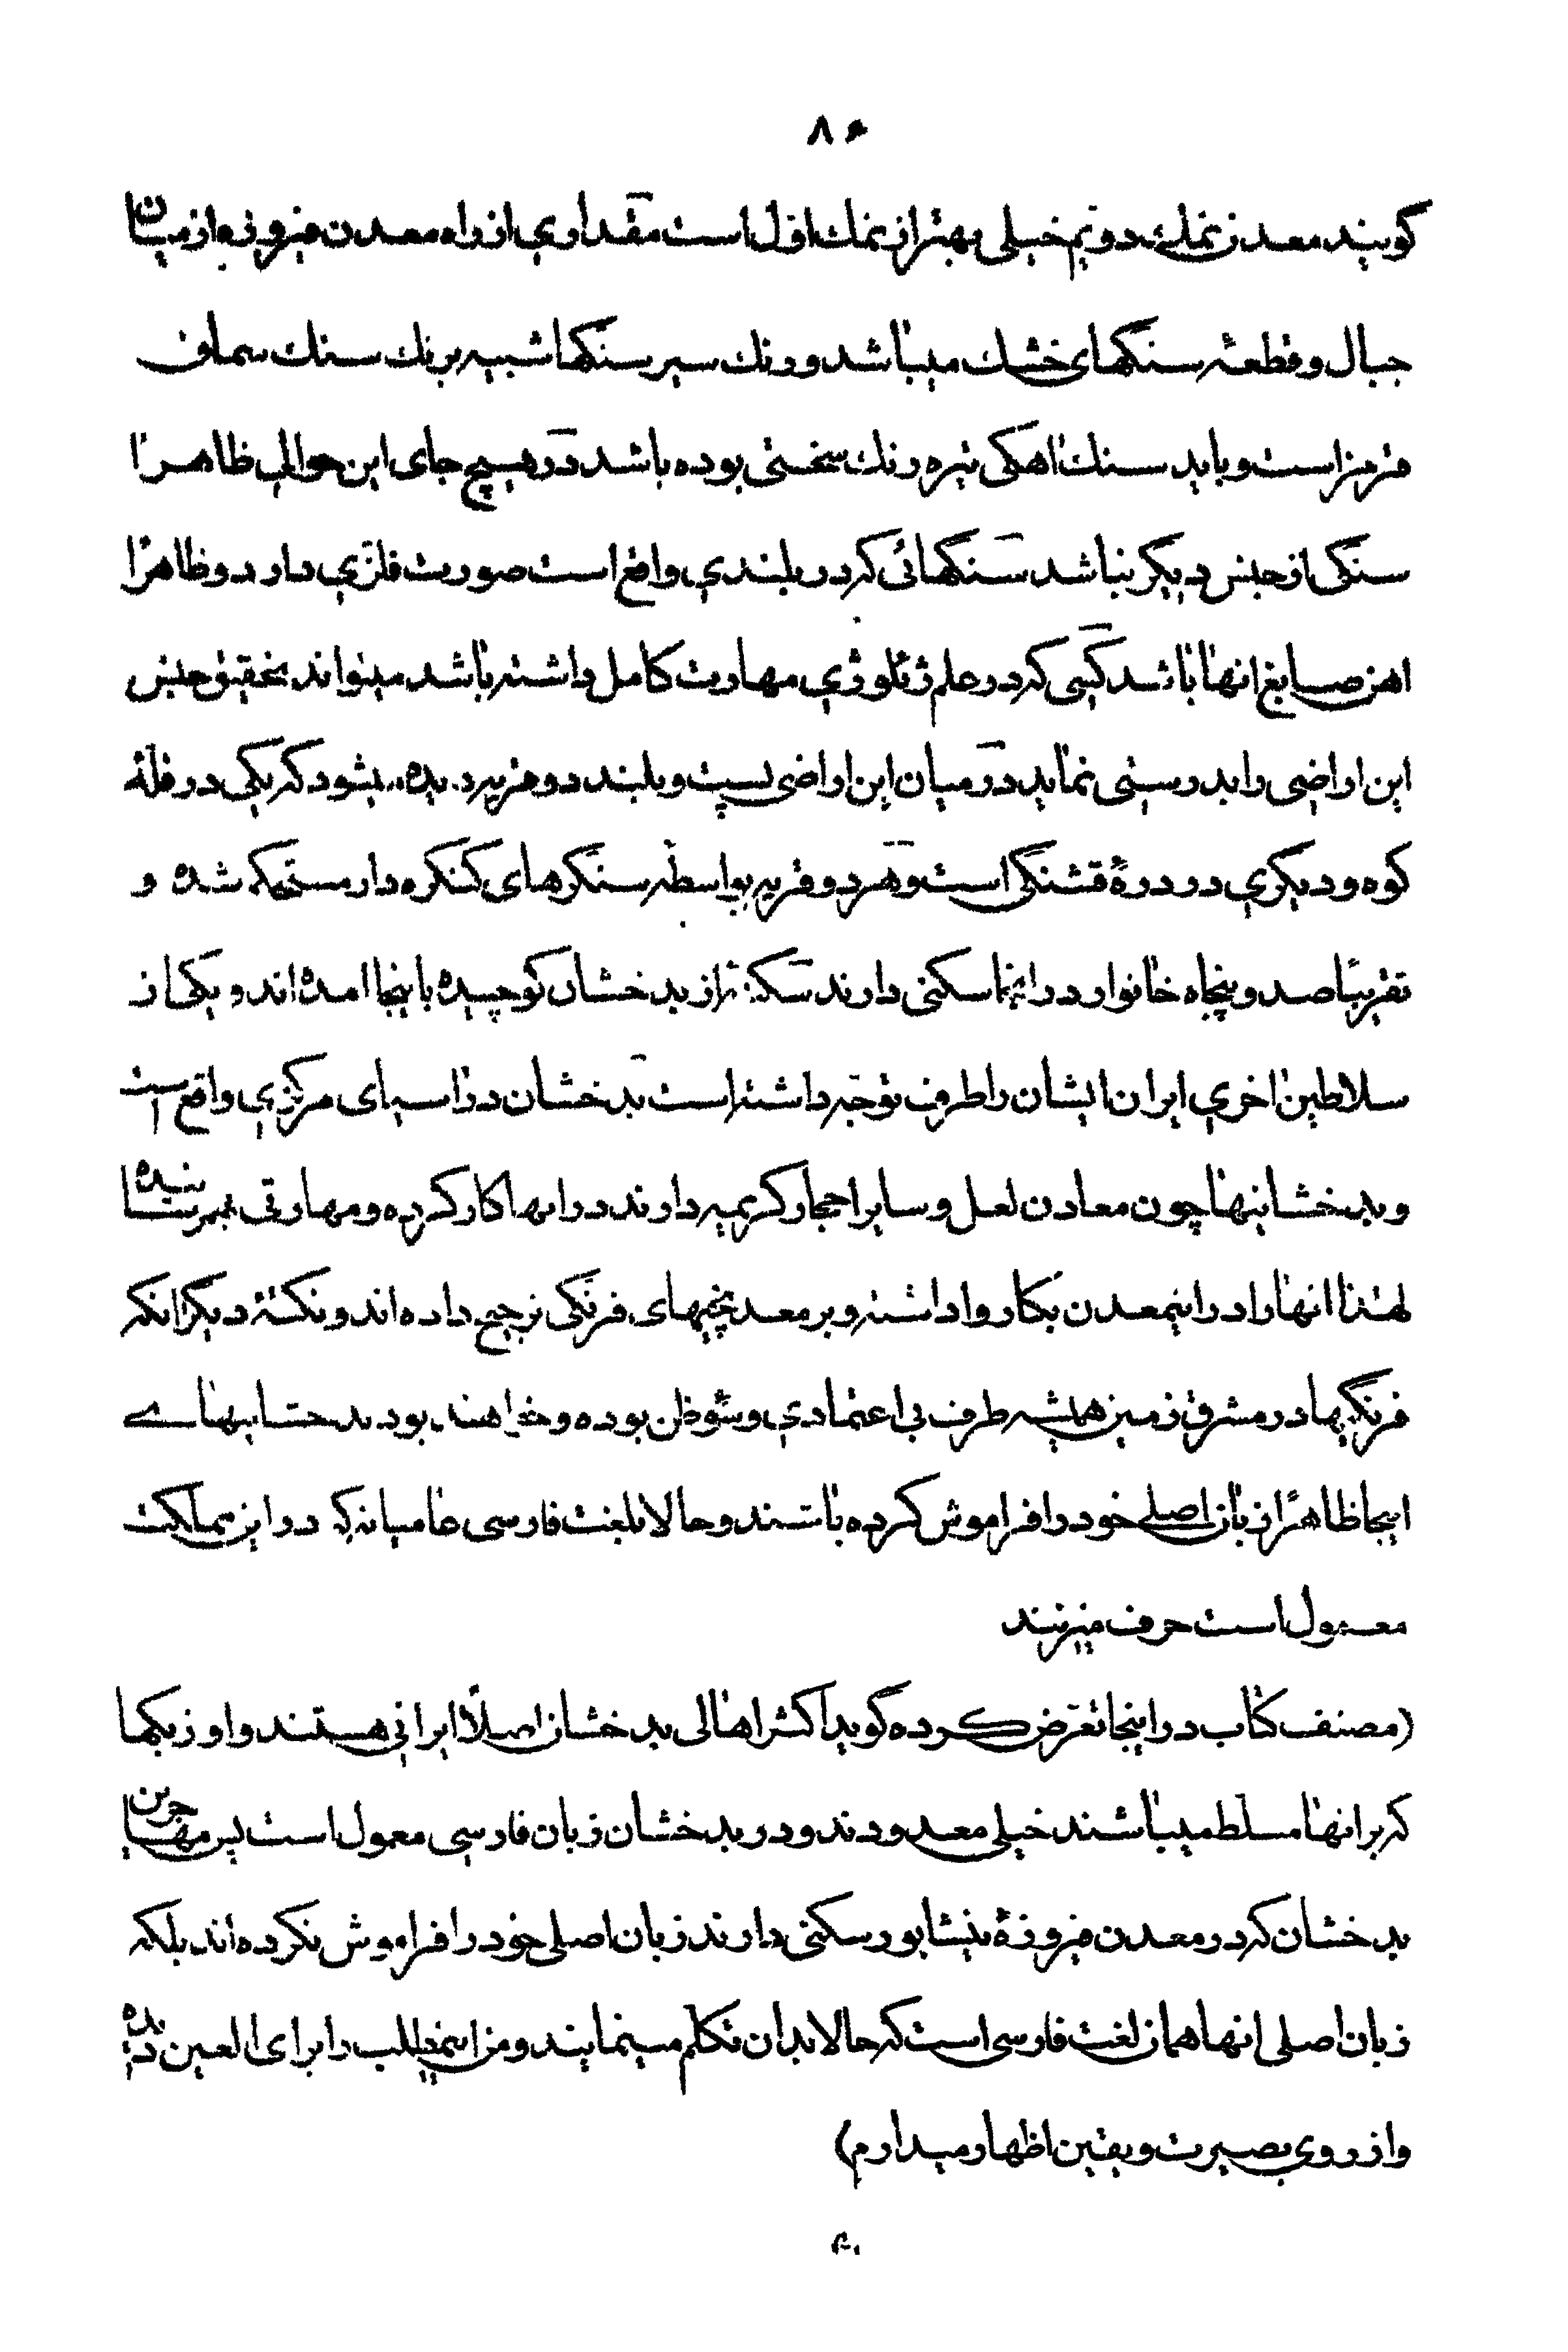 ۸۰
گویند معدن نمک دویم خیلی بهتر از نمک اول است مقداری از راه معدن فیروزه از میان
جبال و قطعهٔ سنگهای خشک میباشد و رنک سیر سنگها شبیه برنک سنک سماق
قرمز است و باید سنک اهکی تیره رنک سختی بوده باشد در هیچ جای این حوالی ظاهرا
سنگی از جنس دیگر نباشد سنگهائی که در بلندی واقع است صورت فلزی دارد و ظاهرًا
اهن صایغ انها باشد کسی که در علم ژئلوژی مهارت کامل داشته باشد میتواند تحقیق جنس
این اراضی را بدرستی نماید در میان این اراضی پست و بلند دو قریه دیده میشود که یکی در قلهٔ
کوه و دیگری در درهٔ قشنگی است و هر دو قریه بواسطه سنگرهای کنکره دار مستحکم شده و
تقریبًا صد و پنجاه خانوار در اینجا سکنی دارند سکنه از بدخشان کوچیده باینجا امده اند و یکی از
سلاطین اخری ایران ایشان را طرف توجه داشته است بدخشان در اسیای مرکزی واقع است
و بدخشانیها چون معادن لعل و سایر احجار کریمه دارند در انها کار کرده و مهارتی بهمرسانیده
لهذا انها را در اینمعدن بکار وا داشته و بر معدنچیهای فرنگی ترجیح داده اند و نکتهٔ دیگر انکه
فرنگیها در مشرق زمین همیشه طرف بی اعتمادی و سؤظن بوده و خواهند بود بدخشانیهای
اینجا ظاهرًا زبان اصلی خود را فراموش کرده باشند و حالا بلغت فارسی عامیانه که در این مملکت
معمول است حرف میزنند
(مصنف کتاب در اینجا تعرض کرده گوید اکثر اهالی بدخشان اصلًا ایرانی هستند و اوزبکها
که بر انها مسلط میباشند خیلی معدودند و در بدخشان زبان فارسی معمول است پس مهاجرین
بدخشان که در معدن فیروزهٔ نیشابور سکنی دارند زبان اصلی خود را فراموش نکرده اند بلکه
زبان اصلی انها همان لغت فارسی است که حالا بدان تکلم مینمایند و من اینمطلب را برای العین دیده
و از روی بصیرت و یقین اظهار میدارم)